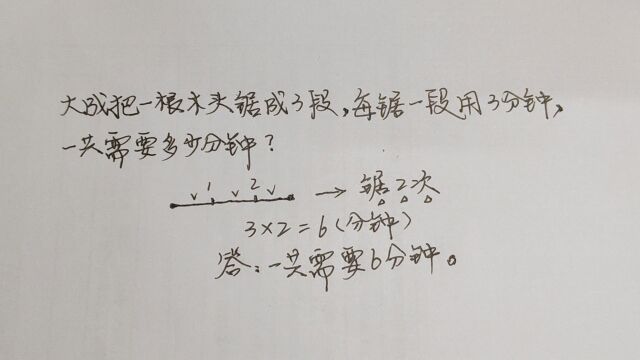 大成把一根木头锯成3段,每锯一段用3分钟,
一共需要多少分钟?
1 2 → 锯2次
3×2=6(分钟)
答:一共需要6分钟。